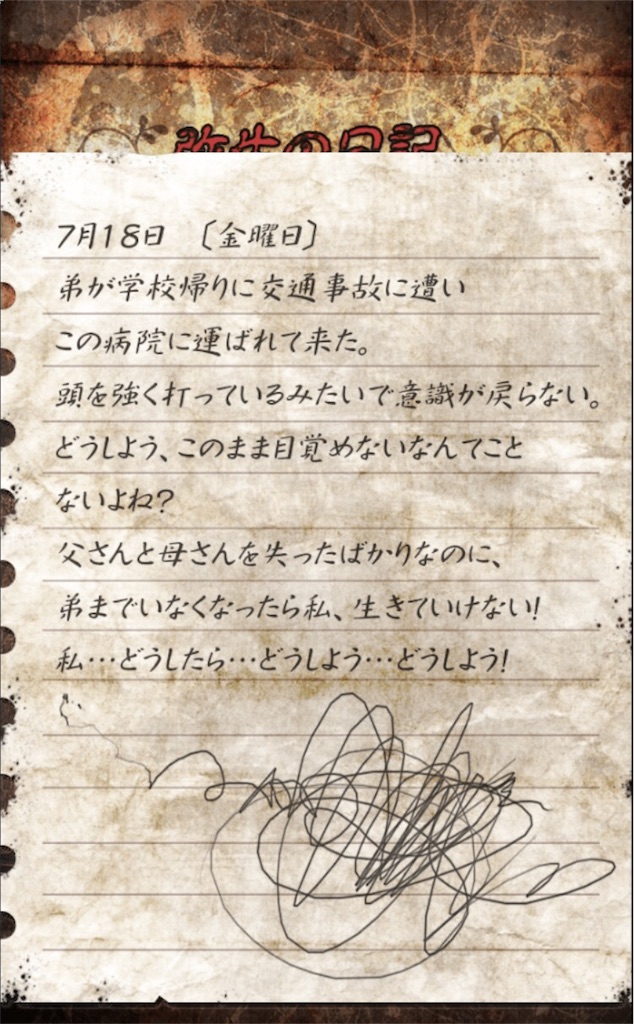 弥生の日記
7月18日 〔金曜日〕
弟が学校帰りに交通事故に遭い
この病院に運ばれて来た。
頭を強く打っているみたいで意識が戻らない。
どうしよう、このまま目覚めないなんてこと
ないよね?
父さんと母さんを失ったばかりなのに、
弟までいなくなったら私、生きていけない!
私…どうしたら…どうしよう…どうしよう!